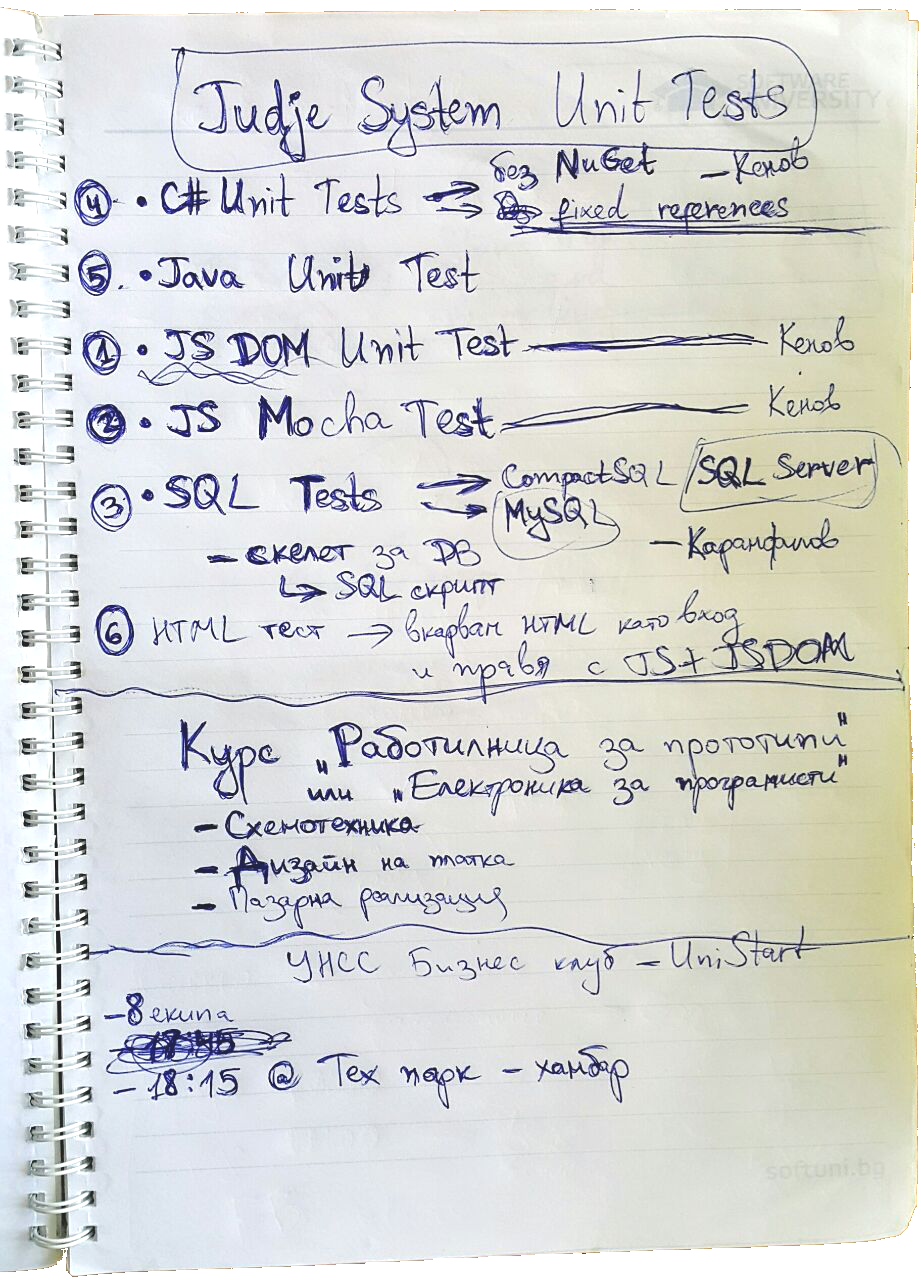 SOFTWARE UNIVERSITY
Judje System Unit Tests
④ • C# Unit Tests → без NuGet – Кенов
→ fixed references
⑤. • Java Unit Test
① • JS DOM Unit Test — Кенов
② • JS Mocha Test — Кенов
③ • SQL Tests → CompactSQL SQL Server
→ MySQL
– скелет за DB – Карамфилов
↳ SQL скрипт
⑥ HTML тест → вкарвам HTML като вход
и правя с JS + JSDOM
Курс „Работилница за прототипи"
или „Електроника за програмисти"
– Схемотехника
– Дизайн на платка
– Пазарна реализация
УНСС Бизнес клуб – UniStart
– 8 екипа
– 17:45
– 18:15 @ Тех парк – хамбар
softuni.bg